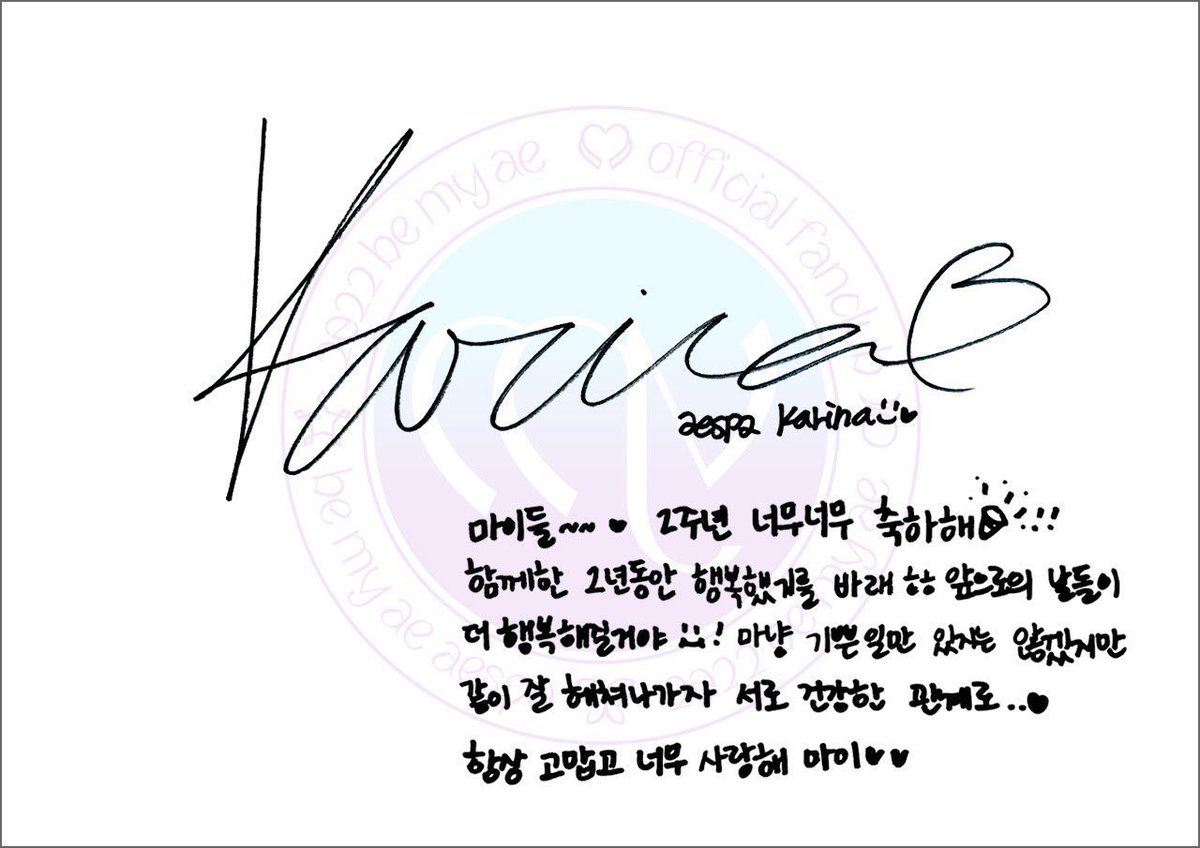 Karina
aespa Karina
마이들~~♥ 2주년 너무너무 축하해!!
함께한 2년동안 행복했기를 바래 ㅎㅎ 앞으로의 날들이
더 행복해질거야 !! 마냥 기쁜일만 있지는 않겠지만
같이 잘 헤쳐나가자 서로 건강한 관계로..♥
항상 고맙고 너무 사랑해 마이♥♥
2022 be my ae ♡ official fanclub
be my ae aespa